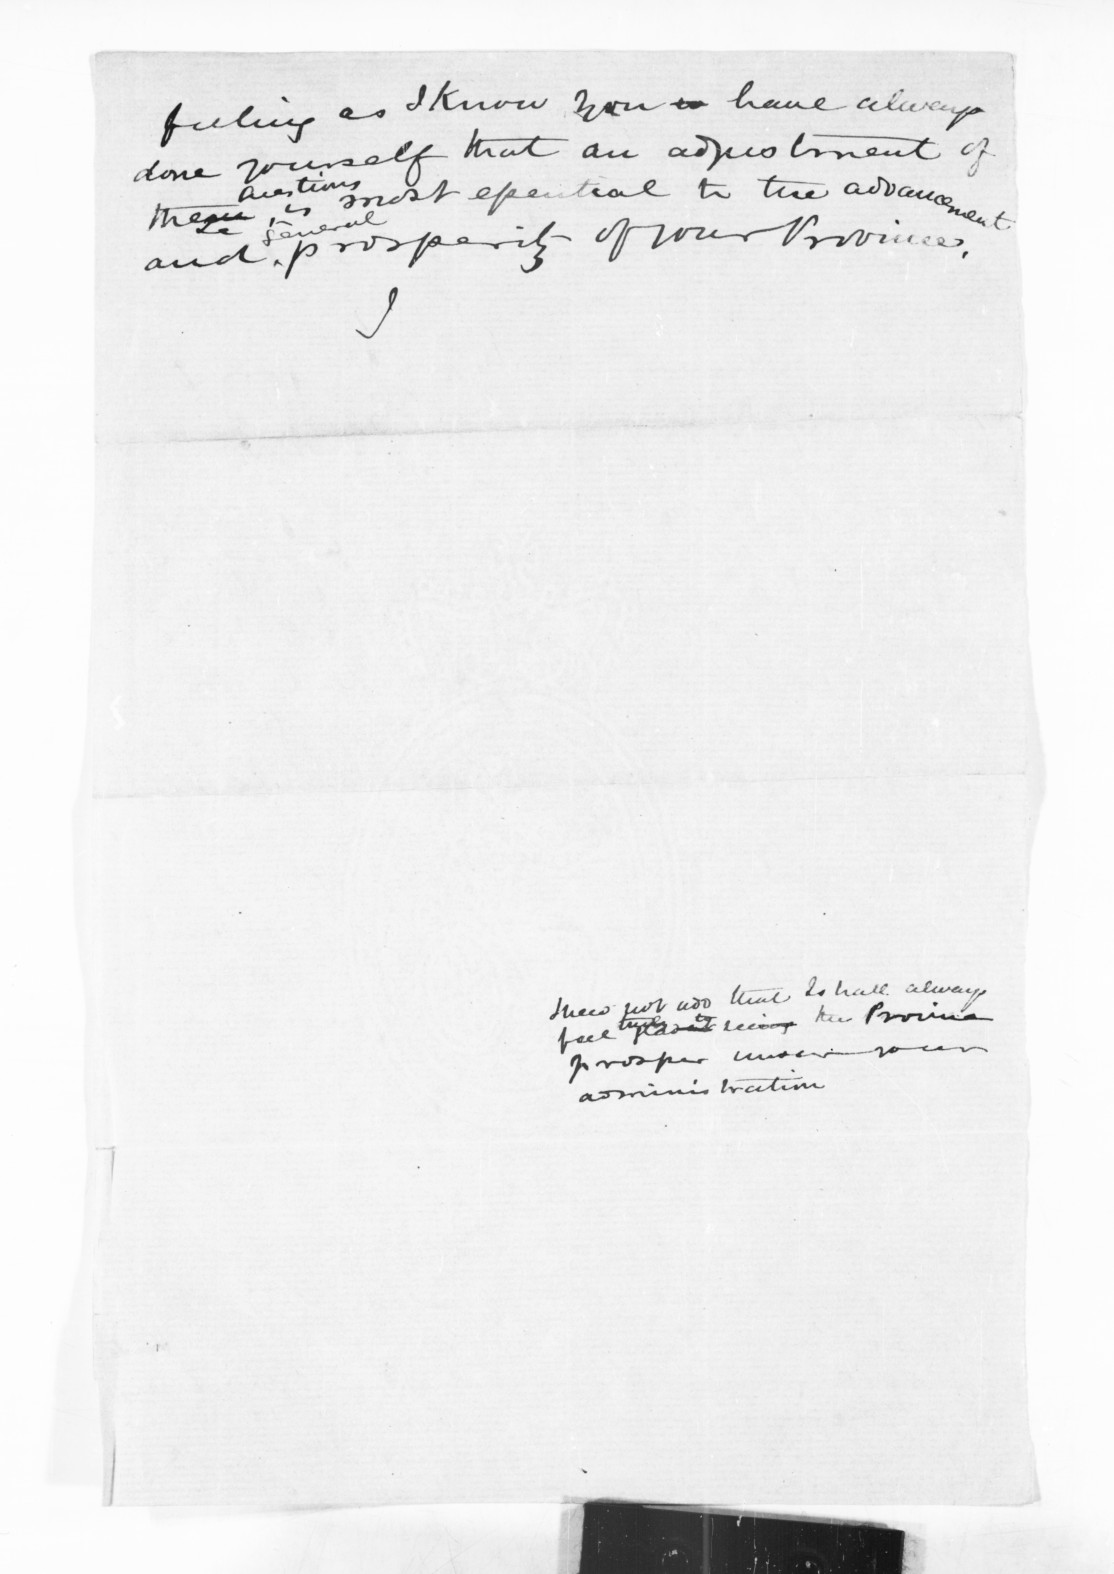 feeling as I Know you have always
done yourself that an adjustment of
these questions is most essential to the advancement
and general prosperity of your Province.
I
I need not add that I shall always
feel truly glad to the Province
prosper under your
administration